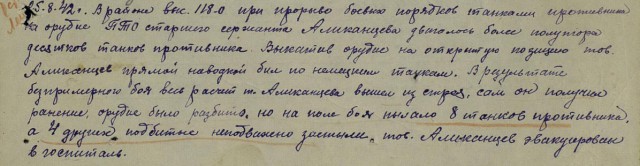 25-8-42г. В районе выс. 118.0 при прорыве боевых порядков танками противника
на орудие ПТО старшего сержанта Алиханцева двигалось более полутора
десятков танков противника. Выкатив орудие на открытую позицию тов.
Алиханцев прямой наводкой бил по немецким танкам. В результате
беспримерного боя весь расчет т. Алиханцева вышел из строя, сам он получил
ранение, орудие было разбито, но на поле боя пылало 8 танков противника,
а 4 других подбитые неподвижно застыли. тов. Алиханцев эвакуирован
в госпиталь.